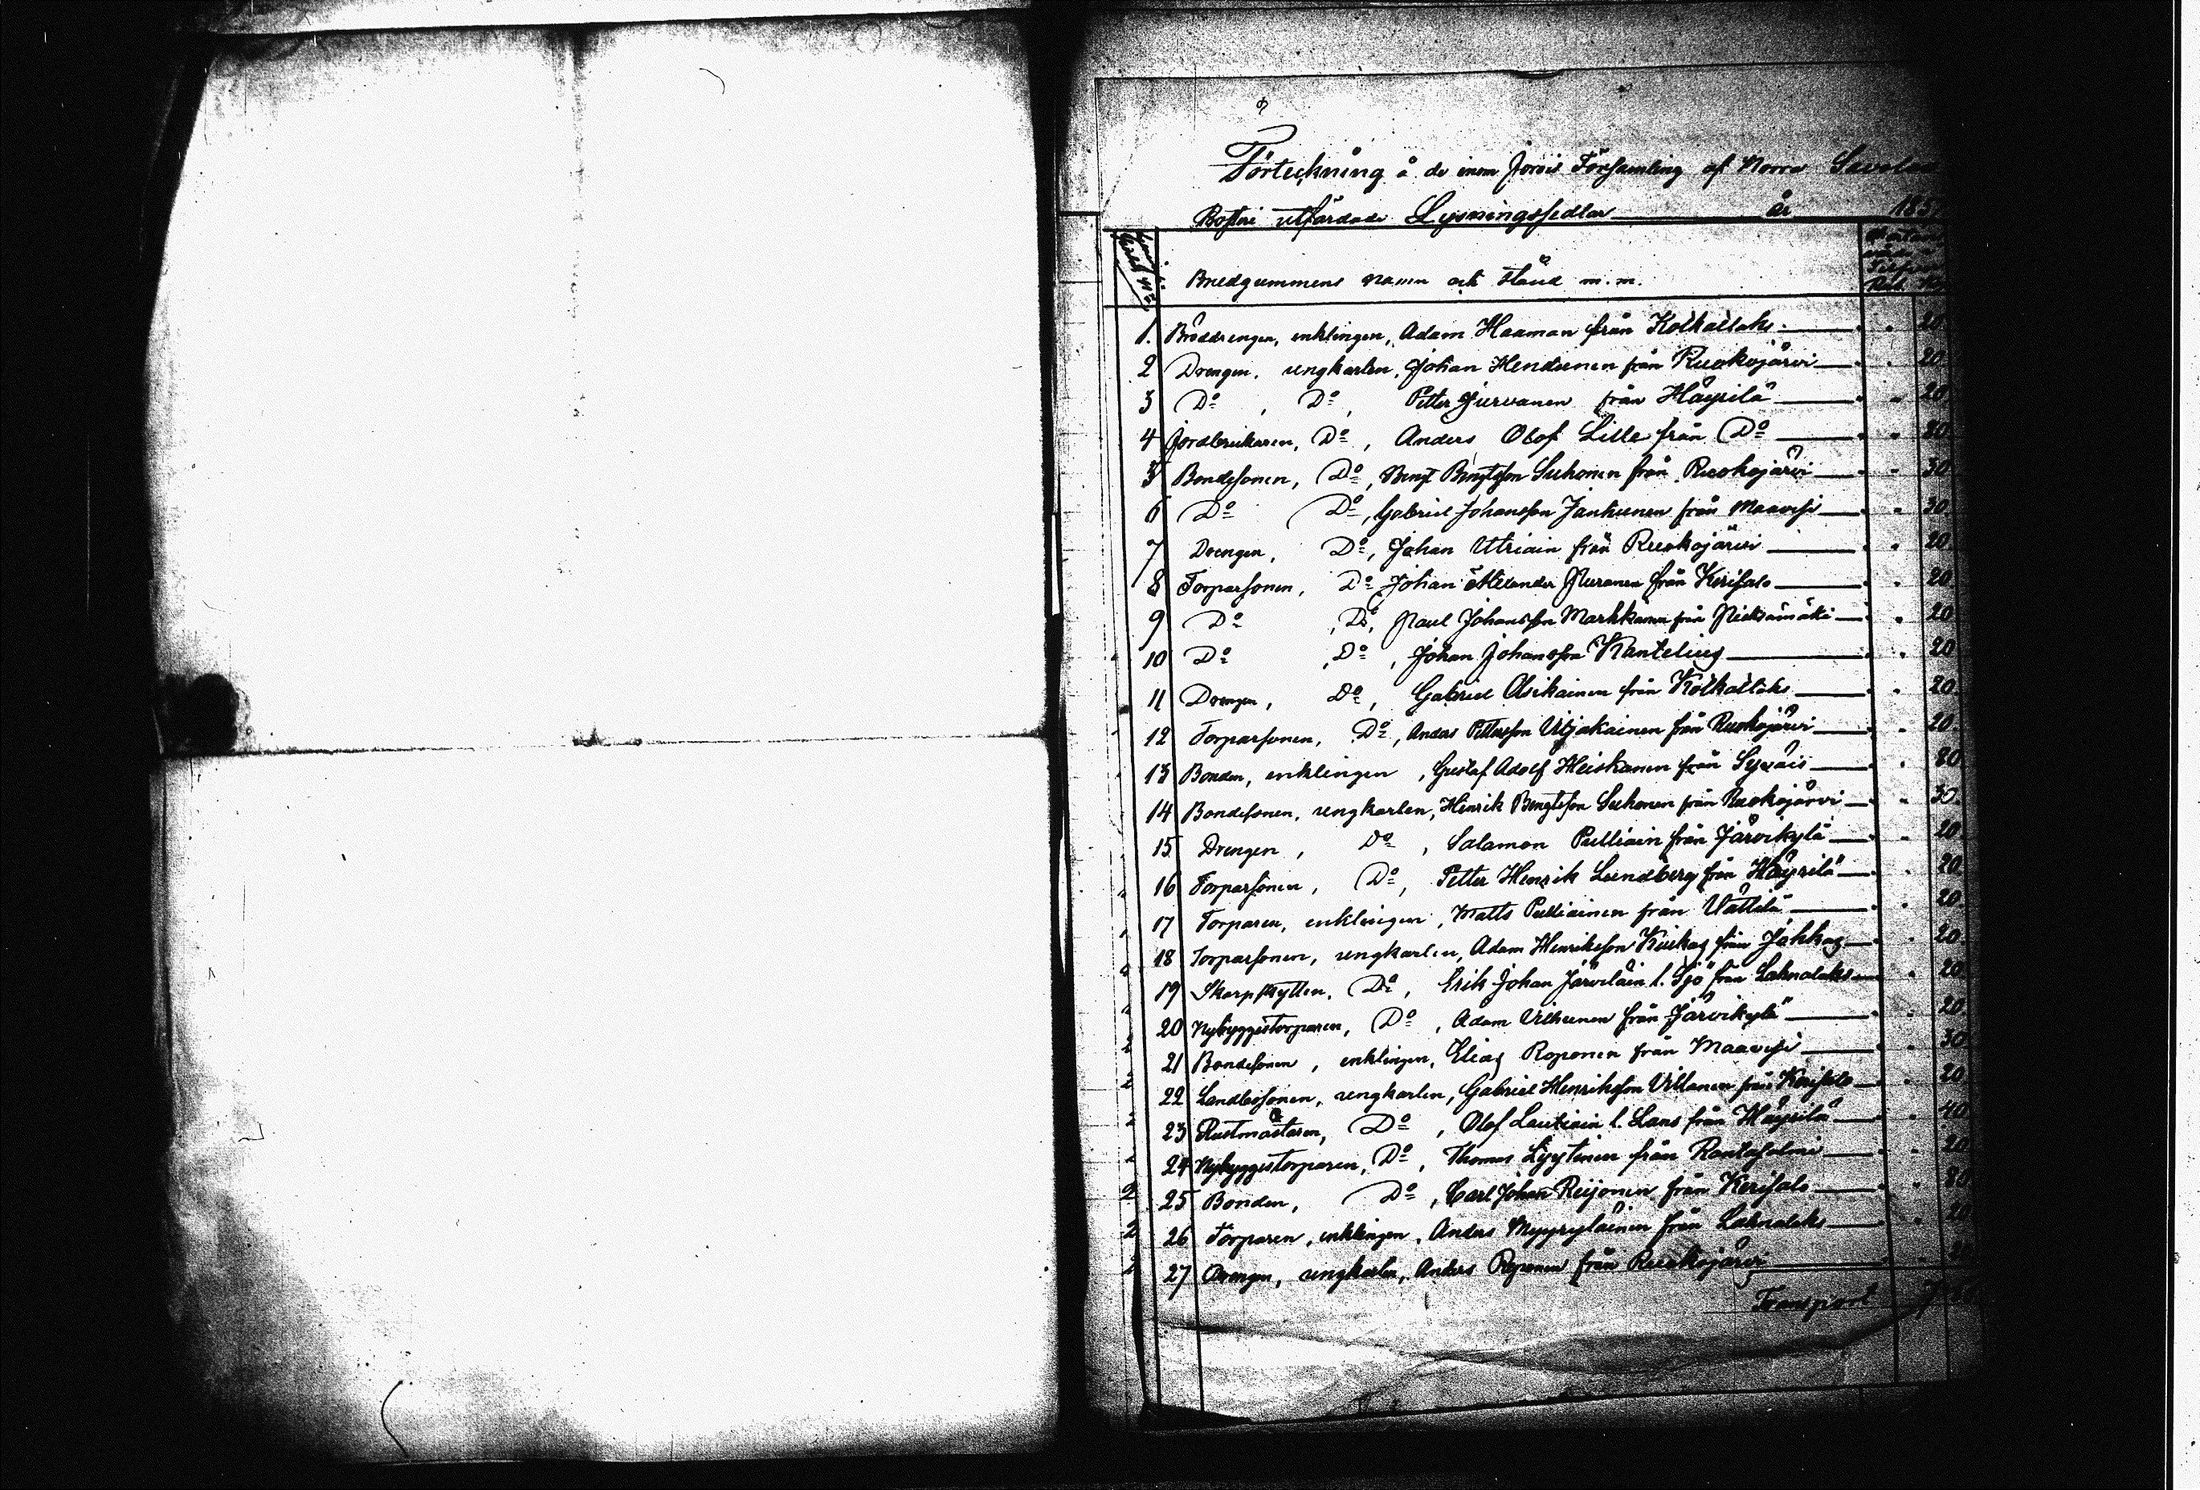 Förteckning å de inom Jorois Församling af Norra Savolax
Prosteri utfärdade Lysningssedlar år 185
Brudgummens namn och stånd m.m.
1. Broddrengen, enklingen, Adam Haaman från Kolkailaks 20
2 Drengen, ungkarlen, Johan Hendunen från Ruokojärvi 20
3 Do, Do, Petter Jurvanen från Häyrilä 20
4 Jordbrukaren, Do, Anders Olof Lille från Do
5 Bondesonen, Do, Bengt Bengtsson Suhonen från Ruokojärvi 30
6 Do Do, Gabriel Johansson Jantunen från Maavesi 30
7 Drengen, Do, Johan Utriain från Ruokojärvi 20
8 Torparsonen, Do Johan Alexander Puranen från Kerisalo 20
9 Do, Do, Paul Johansson Markkanen från Pieksämäki 20
10 Do, Do, Johan Johansson Kantelius 20
11 Drengen, Do, Gabriel Asikainen från Kolkailaks 20
12 Torparsonen, Do, Anders Pettersson Viljakainen från Ruokojärvi 20
13 Bonden, enklingen, Gustaf Adolf Heiskanen från Sysväis 80
14 Bondesonen, ungkarlen, Henrik Bengtsson Suhonen från Ruokojärvi 30
15 Drengen, Do, Salamon Pulliain från Järvikylä 20
16 Torparsonen, Do, Petter Henrik Lundberg från Häyrilä 20
17 Torparen, enklingen, Matts Pulliainen från Vättilä 20
18 Torparsonen, ungkarlen, Adam Henriksson Kiukas från Jokkas 20
19 Skarpskytten, Do, Erik Johan Järviläin l. Sjö från Lahnalaks 20
20 Nybyggestorparen, Do, Adam Vilhunen från Järvikylä 20
21 Bondesonen, enklingen, Elias Roponen från Maavesi 30
22 Landbosonen, ungkarlen, Gabriel Henriksson Villanen från Kerisalo 20
23 Rustmästaren, Do, Olof Lautiain l. Lans från Häyrilä 40
24 Nybyggestorparen, Do, Thomas Lyytinen från Rantasalmi 20
25 Bonden, Do, Carl Johan Reijonen från Kerisalo 80
26 Torparen, enklingen, Anders Myyryläinen från Lahnalaks 20
27 Drengen, ungkarlen, Anders Roponen från Ruokojärvi
Transport 7